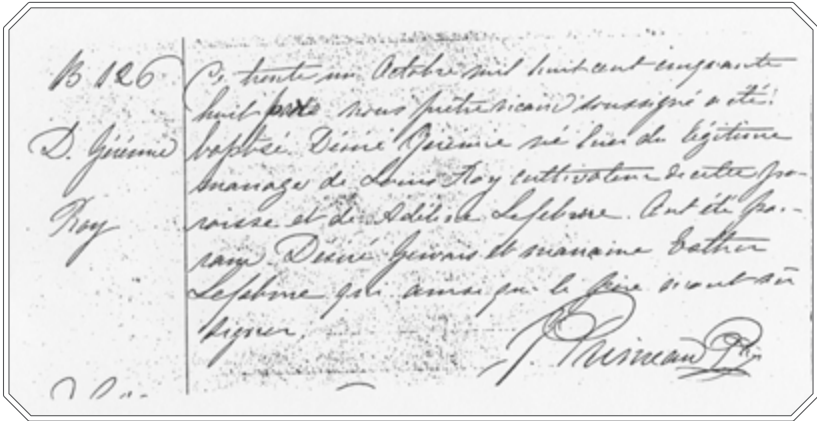 B 126
D. Jérémie
Roy
Ce trente un Octobre mil huit cent cinquante
huit nous prêtre vicaire soussigné a été
baptisé Désiré Jérémie né hier du légitime
mariage de Louis Roy cultivateur de cette pa-
roisse et de Adéline Lefebvre. Ont été par-
rain Désiré Gervais et marraine Esther
Lefebvre qui ainsi que le père n'ont su
signer.
J. Primeau Ptre